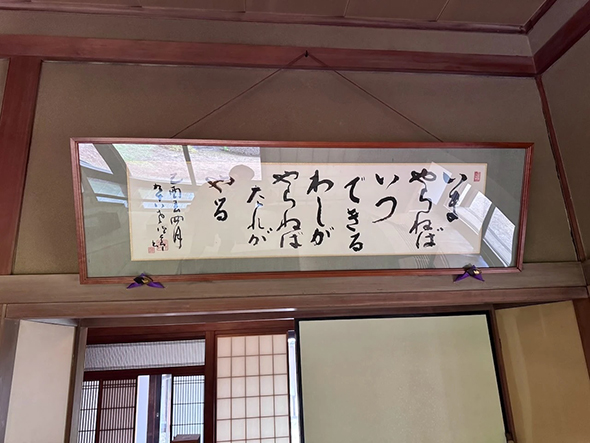 いま
やらねば
いつ
できる
わしが
やらねば
たれが
やる
己酉四月
九十八叟